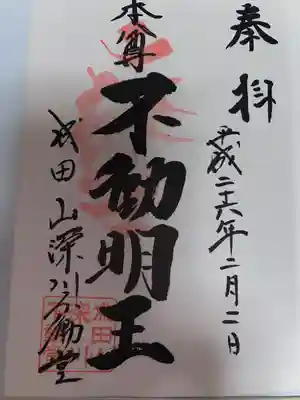 奉拝
平成二十六年二月二日
本尊
不動明王
成田山深川不動堂